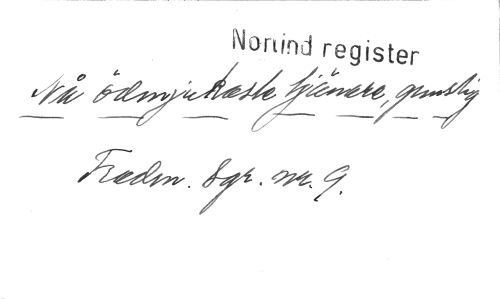 Norlind register
Nå ödmjukaste tjänare, gunstig
Fredm. Sgr. nr. 9.